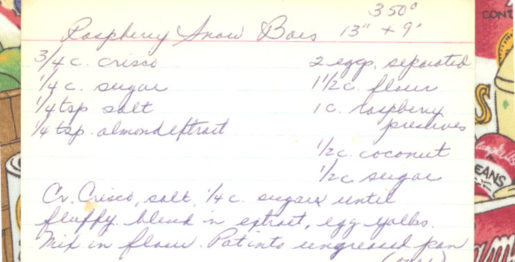 350°
Raspberry Snow Bars 13" + 9"
3/4 c. crisco 2 eggs, separated
1/4 c. sugar 1 1/2 c. flour
1/4 tsp salt 1 c. raspberry
1/4 tsp. almond extract preserves
1/2 c. coconut
1/2 c. sugar
Cr. Crisco, salt, 1/4 c. sugar until
fluffy. blend in extract, egg yolks.
Mix in flour. Pat into ungreased pan
(over)
CONT
EANS